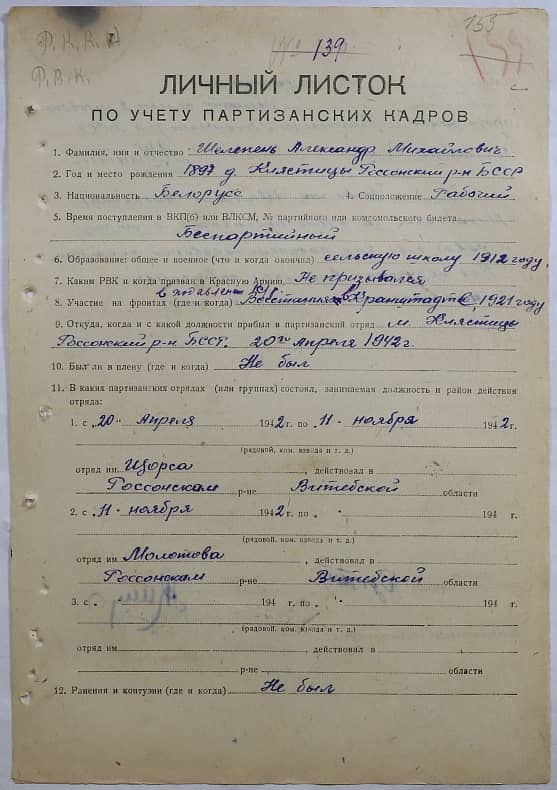 155
Р.К.К.А
Р.В.К.
№ 139
ЛИЧНЫЙ ЛИСТОК
ПО УЧЕТУ ПАРТИЗАНСКИХ КАДРОВ
1. Фамилия, имя и отчество Шелепень Александр Михайлович
2. Год и место рождения 1897 д. Клястицы Россонский р-н БССР
3. Национальность Белорусс 4. Соцположение Рабочий
5. Время поступления в ВКП(б) или ВЛКСМ, № партийного или комсомольского билета
Беспартийный
6. Образование: общее и военное (что и когда окончил) сельскую школу 1912 году.
7. Каким РВК и когда призван в Красную Армию Не призывался
в подавлении
8. Участие на фронтах (где и когда) Восстания в Кранштадте, 1921 году
9. Откуда, когда и с какой должности прибыл в партизанский отряд м. Клястицы
Россонский р-н БССР. 20го Апреля 1942 г.
10. Был ли в плену (где и когда) Не был
11. В каких партизанских отрядах (или группах) состоял, занимаемая должность и район действия
отряда:
1. с „20“ Апреля 1942 г. по „11“ ноября 1942 г.
(рядовой, ком. взвода и т. д.)
отряд им Щорса, действовал в
Россонском р-не Витебской области
2. с „11“ ноября 1942 г. по „ “ 194 г.
(рядовой, ком. взвода и т. д.)
отряд им Молотова, действовал в
Россонском р-не Витебской области
3. с „ 194 г. по „ “ 194 г.
(рядовой, ком. взвода и т. д.)
отряд им , действовал в
р-не области
12. Ранения и контузии (где и когда) Не был